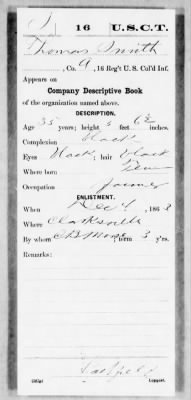 S | 16 | U.S.C.T.
Thomas Smith
, Co. A, 16 Reg't U. S. Col'd Inf.
Appears on
Company Descriptive Book
of the organization named above.
DESCRIPTION.
Age 35 years; height 5 feet 6½ inches.
Complexion black
Eyes black; hair black
Where born Tenn
Occupation farmer
ENLISTMENT.
When Dec 1, 1863
Where Clarksville
By whom; term 3 y'rs.
Remarks:
Copyist.